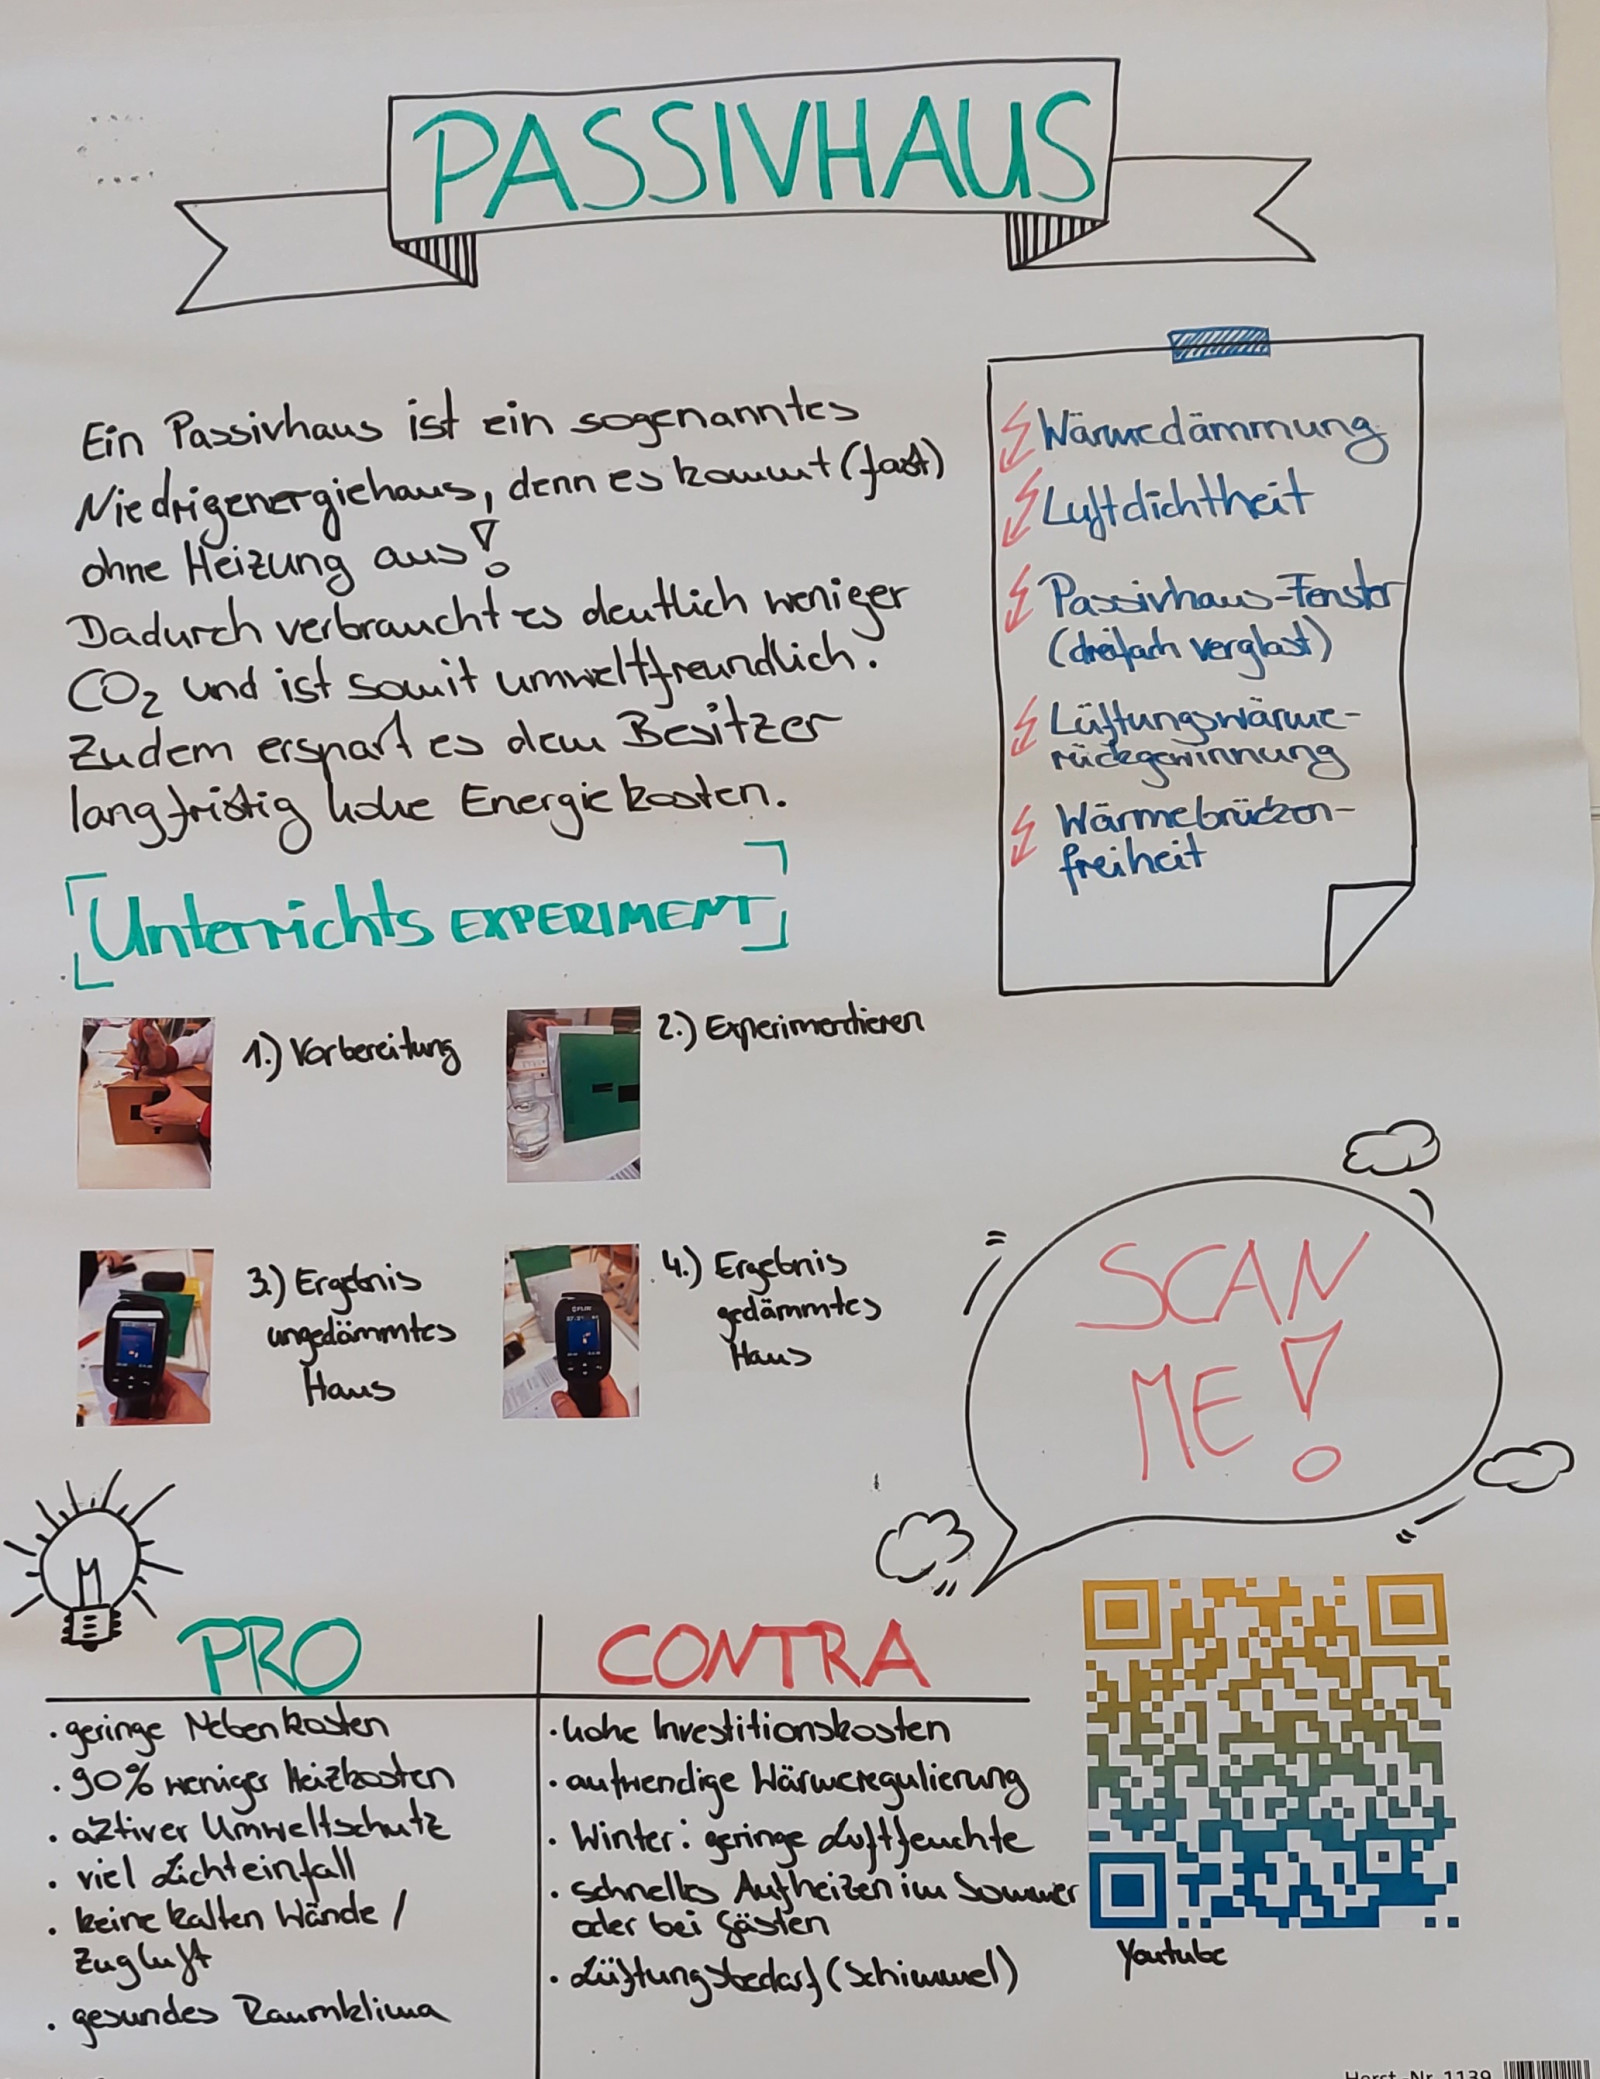 PASSIVHAUS
Ein Passivhaus ist ein sogenanntes
Niedrigenergiehaus, denn es kommt (fast)
ohne Heizung aus!
Dadurch verbraucht es deutlich weniger
CO₂ und ist somit umweltfreundlich.
Zudem erspart es dem Besitzer
langfristig hohe Energiekosten.
Wärmedämmung
Luftdichtheit
Passivhaus-Fenster
(dreifach verglast)
Lüftungswärme-
rückgewinnung
Wärmebrücken-
freiheit
Unterrichts EXPERIMENT
1.) Vorbereitung
2.) Experimentieren
3.) Ergebnis
ungedämmtes
Haus
4.) Ergebnis
gedämmtes
Haus
SCAN
ME!
PRO
· geringe Nebenkosten
· 90% weniger Heizkosten
· aktiver Umweltschutz
· viel Lichteinfall
· keine kalten Wände /
Zugluft
· gesundes Raumklima
CONTRA
· hohe Investitionskosten
· aufwendige Wärmeregulierung
· Winter: geringe Luftfeuchte
· schnelles Aufheizen im Sommer
oder bei Gästen
· Lüftungsbedarf (Schimmel)
Youtube